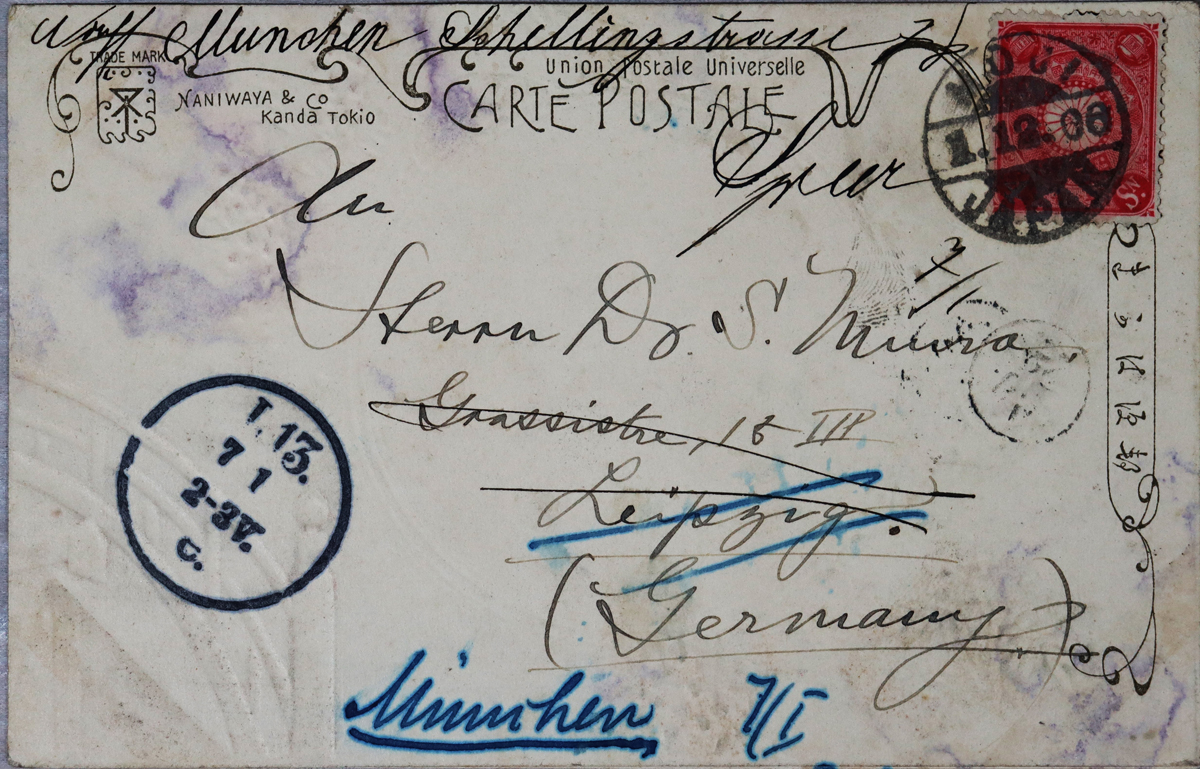 München Schellingstrasse
TRADE MARK
NANIWAYA & Co
Kanda Tokio
Union Postale Universelle
CARTE POSTALE
1.12.06
JAPAN
Sn.
An
Herrn Dr. S. Miura
3/1
Grassistre, 15 III
Leipzig.
(Germany)
T.13.
7 1
2-3V.
c.
München 7/I